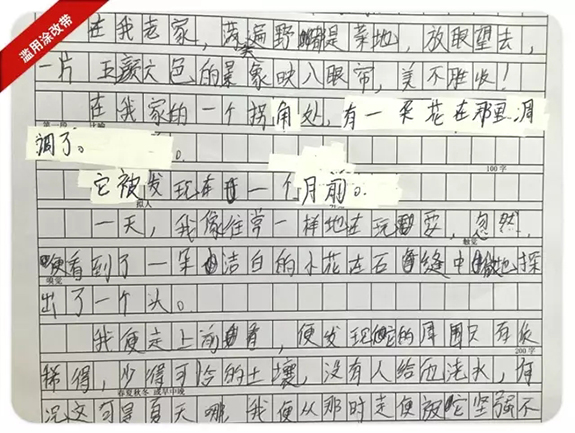 滥用涂改带
在我老家，满遍野都是菜地，放眼望去，
一片五颜六色的景象映入眼帘，美不胜收！
在我家的一个拐角处，有一朵花在那里凋
第一段
调了。
100字
它被发现在一个月前。
拟人
一天，我像往常一样地在玩耍，忽然，
触觉
便看到了一朵洁白的小花在石缝中地探
嗅觉
出了一个头。
我便走上前看，便发现它的周围只有依
200字
稀得，少得可怜的土壤，没有人给他浇水，
春夏秋冬 或早中晚
可是夏天哪，我便从那时走便被它坚强不